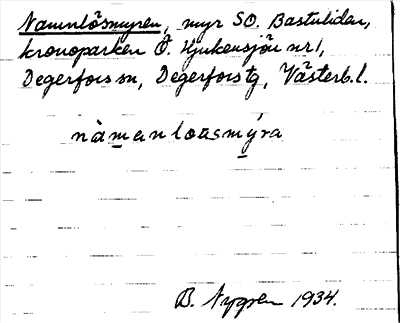 Namnlösmyren, myr SO. Bastuliden,
kronoparken Ö. Hjukensjön nr 1,
Degerfors sn, Degerfors tg, Västerb. l.
nàmanloüsmýra
B. Nygren 1934.